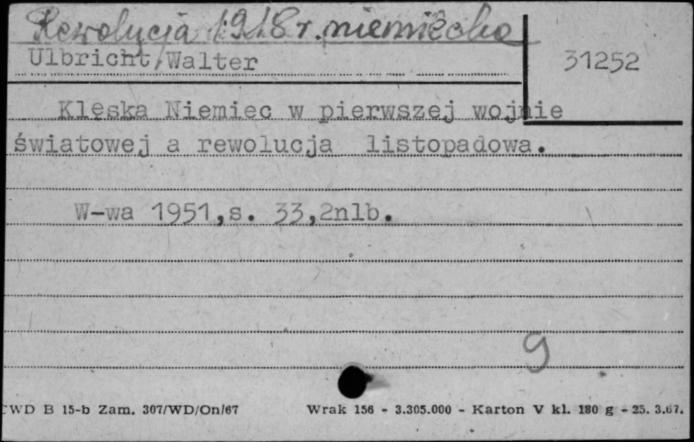 Rewolucja 1918 r. niemiecka
Ulbricht, Walter
31252
Klęska Niemiec w pierwszej wojnie
światowej a rewolucja listopadowa.
W-wa 1951,s. 33,2nlb.
9
CWD B 15-b Zam. 307/WD/On/67 Wrak 156 - 3.305.000 - Karton V kl. 180 g - 25. 3.67.